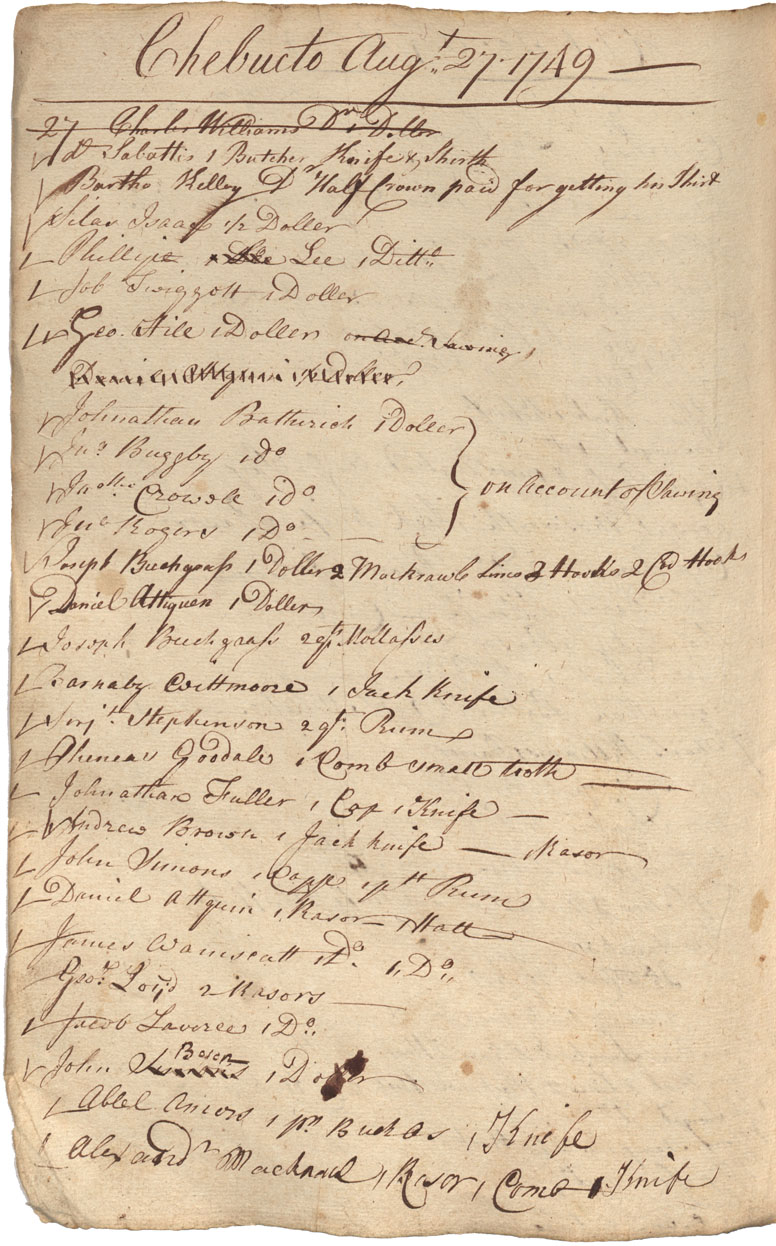 Chebucto Augt. 27. 1749
27 Charles Williams Dr 1 Doller
do Sabattis 1 Butcher Knife & Shirth
Bartho Kelley Dr Half Crown paid for getting his Shirt
Silas Isaac 1/2 Doller
Phillip Lee 1 Ditto
Job Twiggott 1 Doller
Geo. Hill 1 Doller on Acct. Sawing
Johnathan Batherich 1 Doller
Jno Buggby 1 do
Jnothn Crowell 1 do
on account of Sawing
Jno Rogers 1 Do
Joseph Buckgass 1 Doller 2 Mackrawl Lines 2 Hooks 2 Cod Hooks
Daniel Attiquen 1 Doller
Joseph Buckgass 2 qts Mollasses
Barnaby Wittmoore 1 Jack Knife
Serjt. Stephenson 2 qts Rum
Phineas Goodale 1 Comb small tooth
Johnathan Fuller 1 Cap 1 Knife
Andrew Brown 1 Jack knife 1 Rasor
John Simons 1 Capp 1 pt Rum
Daniel Attquin 1 Rasor 1 Hatt
James Waniscatt 1 Do. 1 Do
Geor. Loyd 2 Rasors
Jacob Laveree 1 Do
Besen
John 1 Doller
Abbel Anions 1 pr Buckls 1 Knife
Alexandr Macknaul 1 Rasor 1 Comb 1 Knife